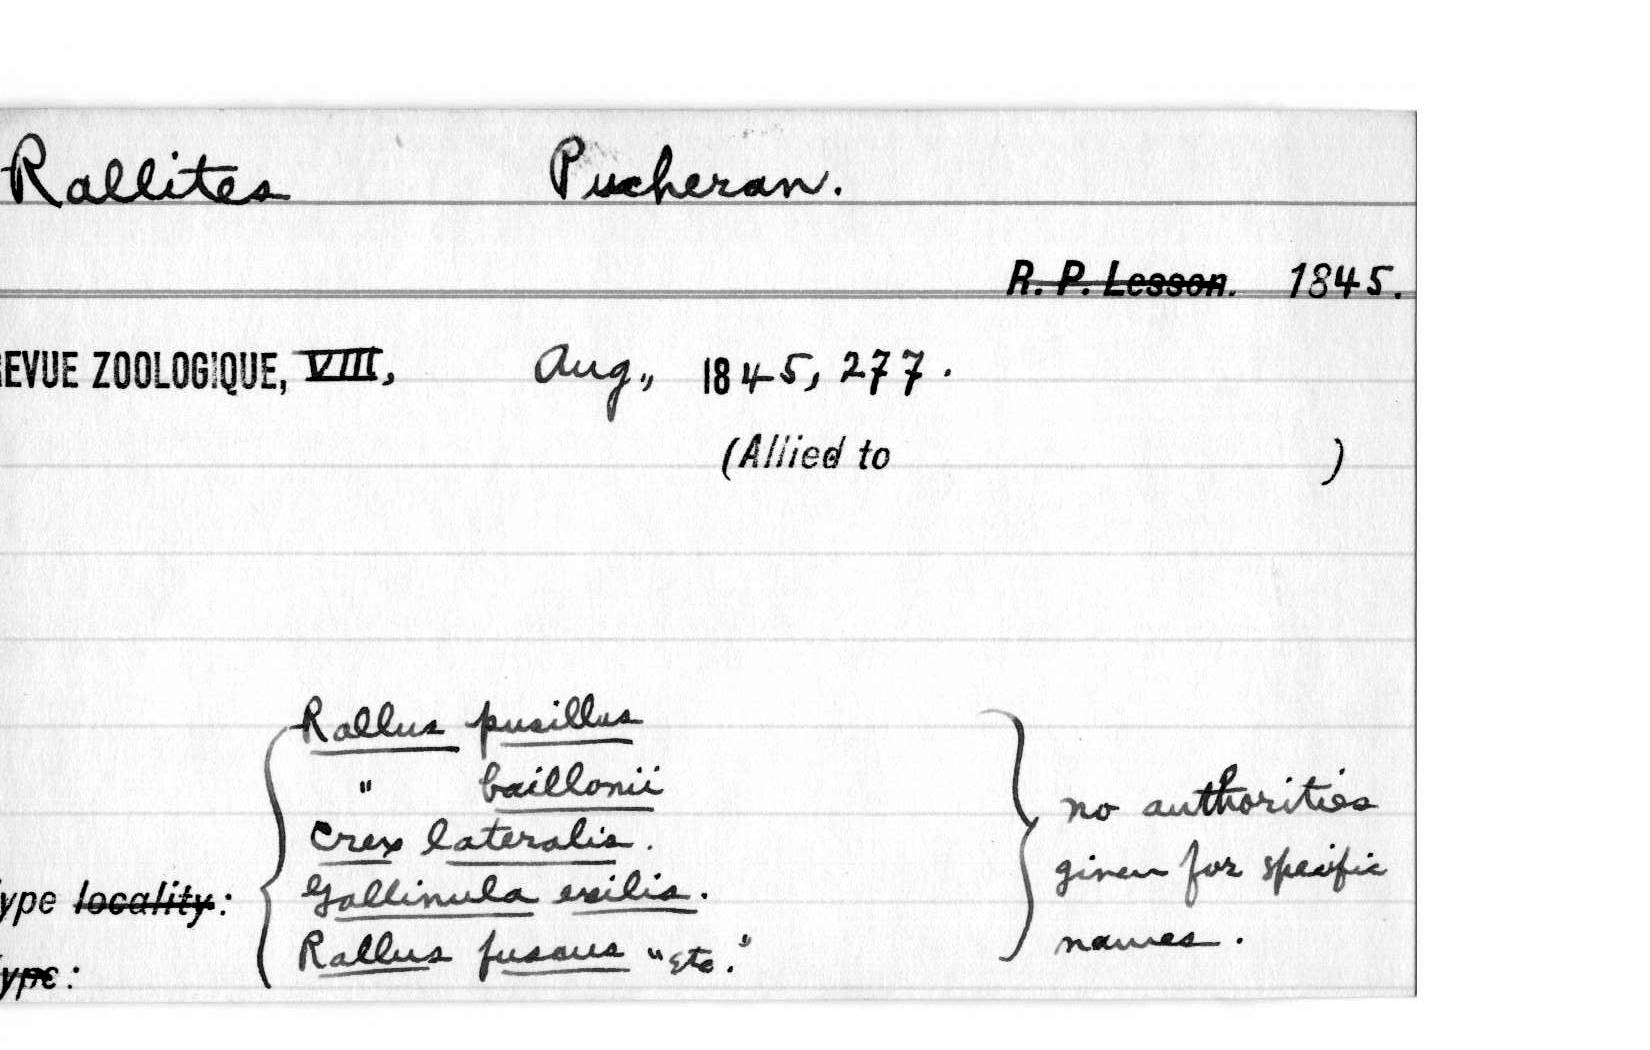 Rallites Pucheran.
R. P. Lesson. 1845.
REVUE ZOOLOGIQUE, VIII, Aug., 1845, 277.
(Allied to )
Rallus pusillus
" baillonii
Crex lateralis.
Gallinula exilis.
Rallus fuscus "Etc."
no authorities
given for specific
names.
ype locality:
ype: